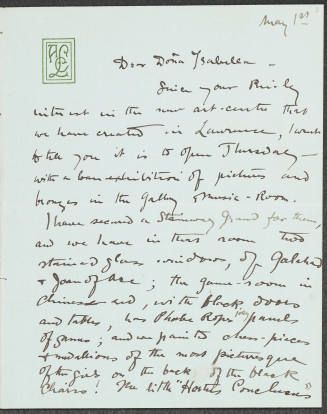 May 1st
Dear Doña Ysabella —
Since your kindly
interest in the new art-centre that
we have created in Lawrence, I want
to tell you it is to open Thursday —
with a loan exhibition of pictures and
bronzes in the Gallery & Music-Room.
I have secured a Steinway Grand for them,
and we have in that room two
stained glass windows, of Galahad
& Joan of Arc; the game-room in
Chinese red, with black doors
and tables, has Phoebe Ropes' panels
of games; and we painted chess-pieces
& medallions of the most picturesque
of the on the back of the black
chairs! The little "Hortus Conclusus"